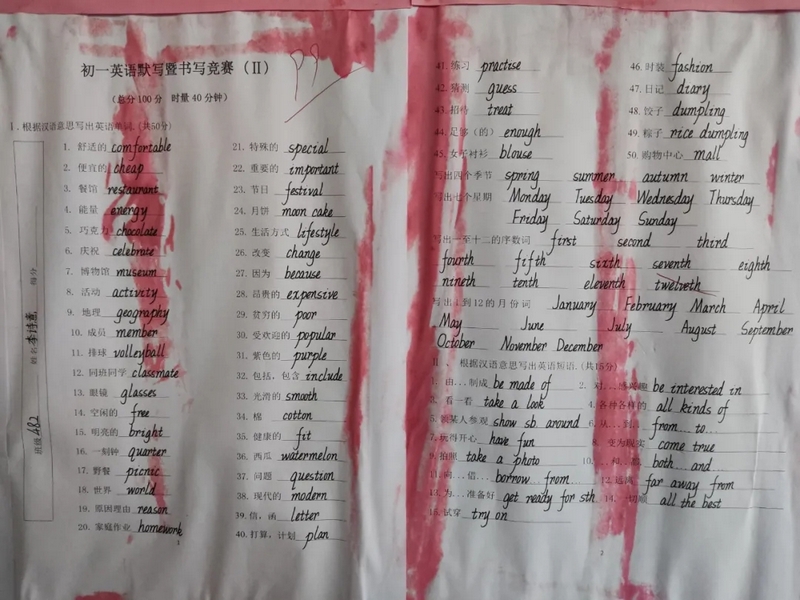 初一英语默写暨书写竞赛（II）
99
（总分100分 时量40分钟）
I．根据汉语意思写出英语单词.（共50分）
班级 482 姓名 得分
1. 舒适的 comfortable
2. 便宜的 cheap
3. 餐馆 restaurant
4. 能量 energy
5. 巧克力 chocolate
6. 庆祝 celebrate
7. 博物馆 museum
8. 活动 activity
9. 地理 geography
10. 成员 member
11. 排球 volleyball
12. 同班同学 classmate
13. 眼镜 glasses
14. 空闲的 free
15. 明亮的 bright
16. 一刻钟 quarter
17. 野餐 picnic
18. 世界 world
19. 原因理由 reason
20. 家庭作业 homework
21. 特殊的 special
22. 重要的 important
23. 节日 festival
24. 月饼 moon cake
25. 生活方式 lifestyle
26. 改变 change
27. 因为 because
28. 昂贵的 expensive
29. 贫穷的 poor
30. 受欢迎的 popular
31. 紫色的 purple
32. 包括，包含 include
33. 光滑的 smooth
34. 棉 cotton
35. 健康的 fit
36. 西瓜 watermelon
37. 问题 question
38. 现代的 modern
39. 信，函 letter
40. 打算，计划 plan
1
41. 练习 practise
42. 猜测 guess
43. 招待 treat
44. 足够（的） enough
45. 女子衬衫 blouse
46. 时装 fashion
47. 日记 diary
48. 饺子 dumpling
49. 粽子 rice dumpling
50. 购物中心 mall
写出四个季节 spring summer autumn winter
写出七个星期 Monday Tuesday Wednesday Thursday
Friday Saturday Sunday
写出一至十二的序数词 first second third
fourth fifth sixth seventh eighth
nineth tenth eleventh twelveth
写出1到12的月份词 January February March April
May June July August September
October November December
II 、 根据汉语意思写出英语短语.（共15分）
1. 由…制成 be made of
2. 对…感兴趣 be interested in
3. 看一看 take a look
4. 各种各样的 all kinds of
5. 领某人参观 show sb around
6. 从…到… from…to…
7. 玩得开心 have fun
8. 变为现实 come true
9. 拍照 take a photo
10. both…and
11. 向…借… borrow…from…
12. 远离 far away from
13. 为…准备好 get ready for sth
14. 一切顺 all the best
15. 试穿 try on
2